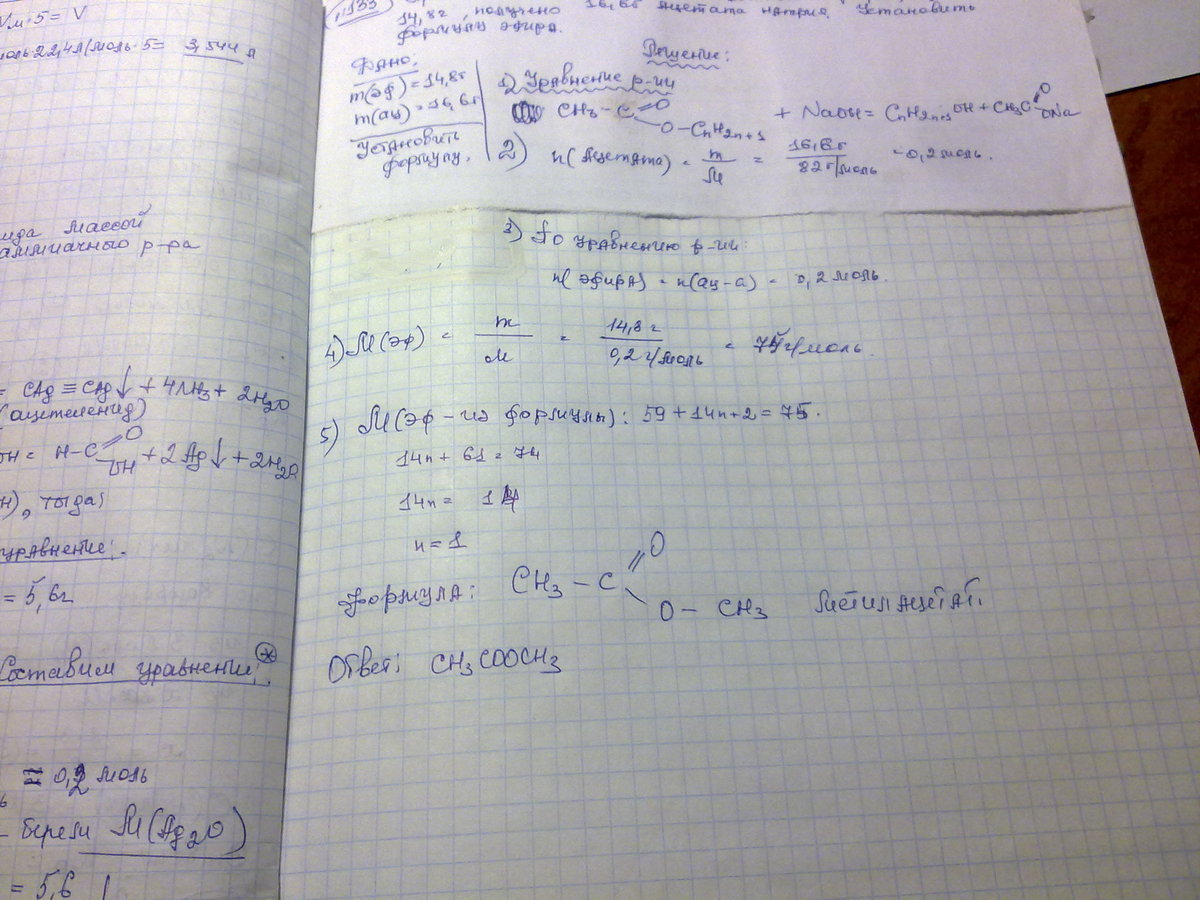 Vм·5= V
моль·22,4л/моль·5= 3,544 л
ида массой
аммиачного р-ра
= CAg≡CAg↓ + 4NH3 + 2H2O
(ацетеленид)
OH = H-C=O OH + 2Ag↓ + 2H2O
н), тогда:
уравнение:
= 5,6г
Составим уравнение: *
= 0,2 моль
- берём M(Ag2O)
= 5,6
14,8г, получено 16,6г ацетата натрия. Установить
формулу эфира.
Решение:
Дано:
m(эф) = 14,8г
m(ац) = 16,6г
Установить
формулу.
1) Уравнение р-ии
CH3 - C=O O - CnH2n+1 + NaOH = CnH2n+1OH + CH3C=O ONa
2) n(Ацетата) = m/M = 16,6г/82г/моль = 0,2 моль.
3) По уравнению р-ии:
n(эфира) = n(ац-а) = 0,2 моль.
4) M(эф) = m/M = 14,8 г/0,2 г/моль = 74г/моль.
5) M(эф - из формулы): 59 + 14n + 2 = 75.
14n + 61 = 74
14n = 14
n = 1
Формула: CH3 - C=O O - CH3 Метилацетат.
Ответ: CH3COOCH3